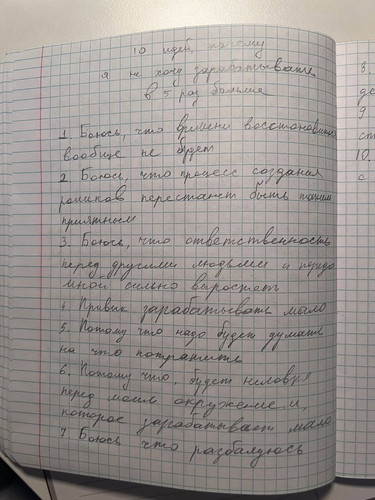 10 идей, почему
я не хочу зарабатывать
в 5 раз больше
1. Боюсь, что времени восстановить
вообще не будет
2. Боюсь, что процесс создания
роликов перестанет быть таким
приятным
3. Боюсь, что ответственность
перед другими людьми и передо
мной сильно выростать
4. Привык зарабатывать мало
5. Потому что надо будет думать
на что потратить
6. Потому что, будет неловко
перед моим окружением,
которое зарабатывает мало
7. Боюсь что разбалуюсь
8.
де
9
ст
10.
с